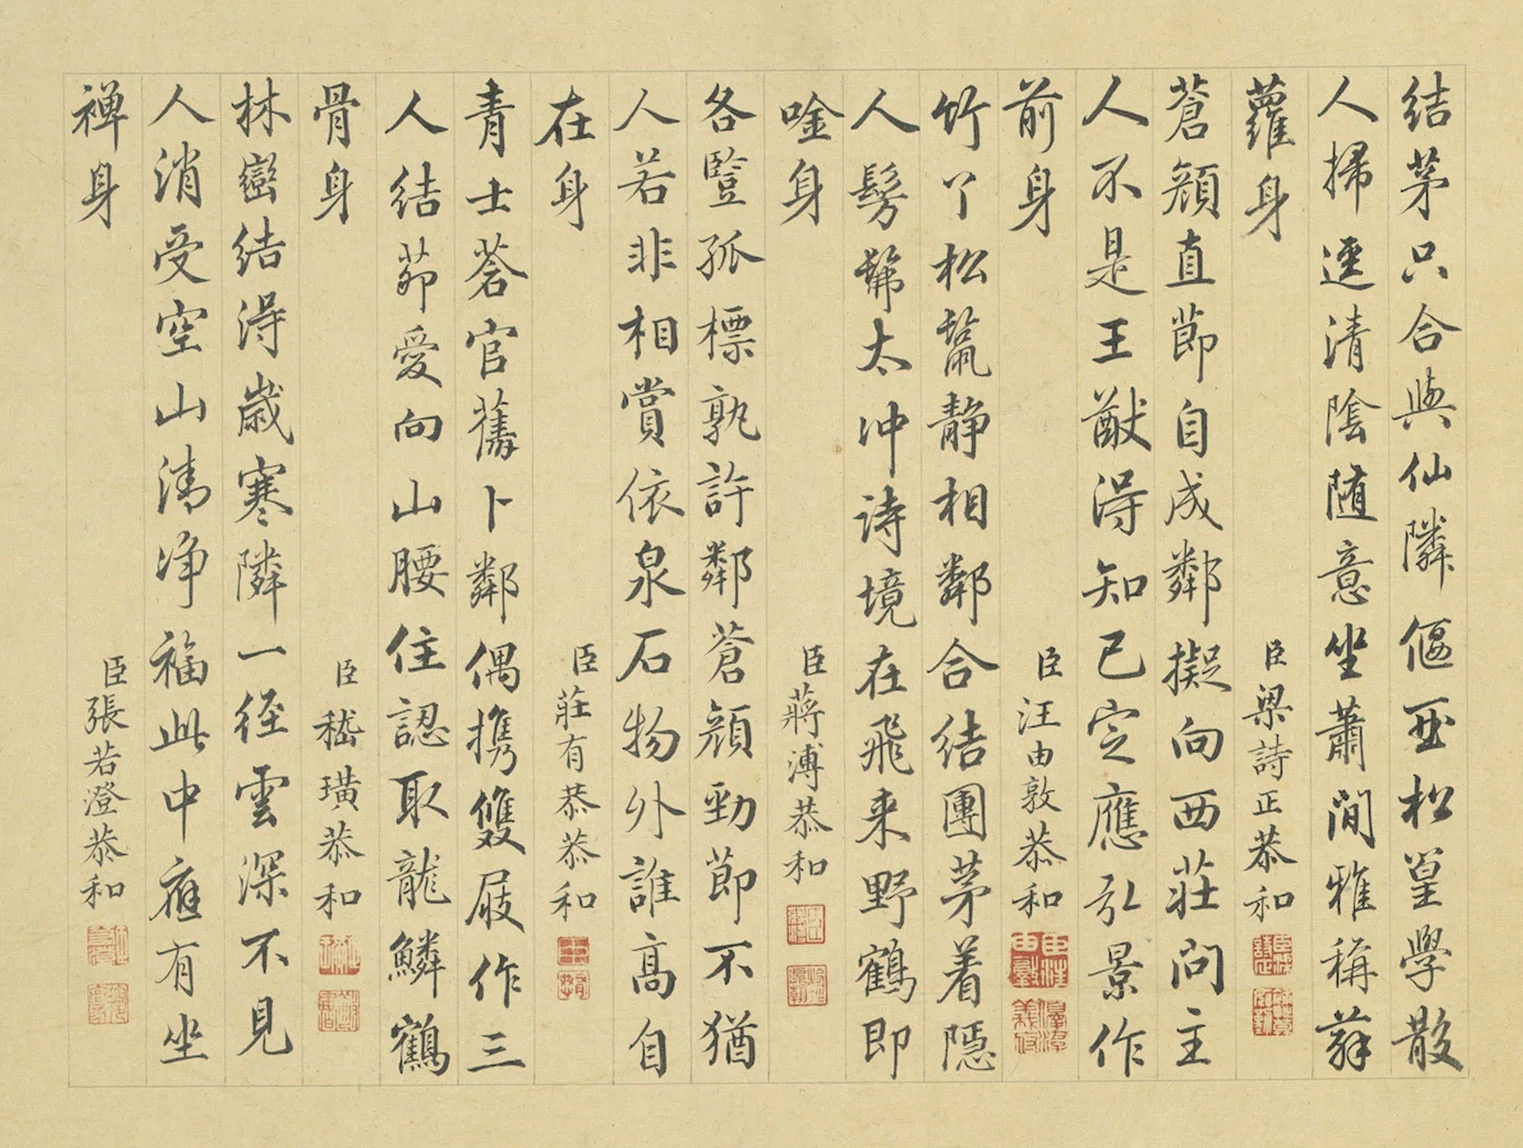 結茅只合與仙隣偃亞松篁學散
人掃逕清陰随意坐蕭閒雅稱薜
蘿身
臣梁詩正恭和
蒼顔直節自成鄰擬向西莊問主
人不是王猷得知己定應弘景作
前身
臣汪由敦恭和
竹丫松鬣静相鄰合結團茅着隱
人髣髴太冲詩境在飛来野鶴即
唫身
臣蔣溥恭和
各豎孤標孰許鄰蒼顔勁節不猶
人若非相賞依泉石物外誰高自
在身
臣莊有恭恭和
青士蒼官舊卜鄰偶携雙屐作三
人結茆愛向山腰住認取龍鱗鶴
骨身
臣嵇璜恭和
林巒結得歲寒隣一徑雲深不見
人消受空山清净福此中應有坐
禅身
臣張若澄恭和